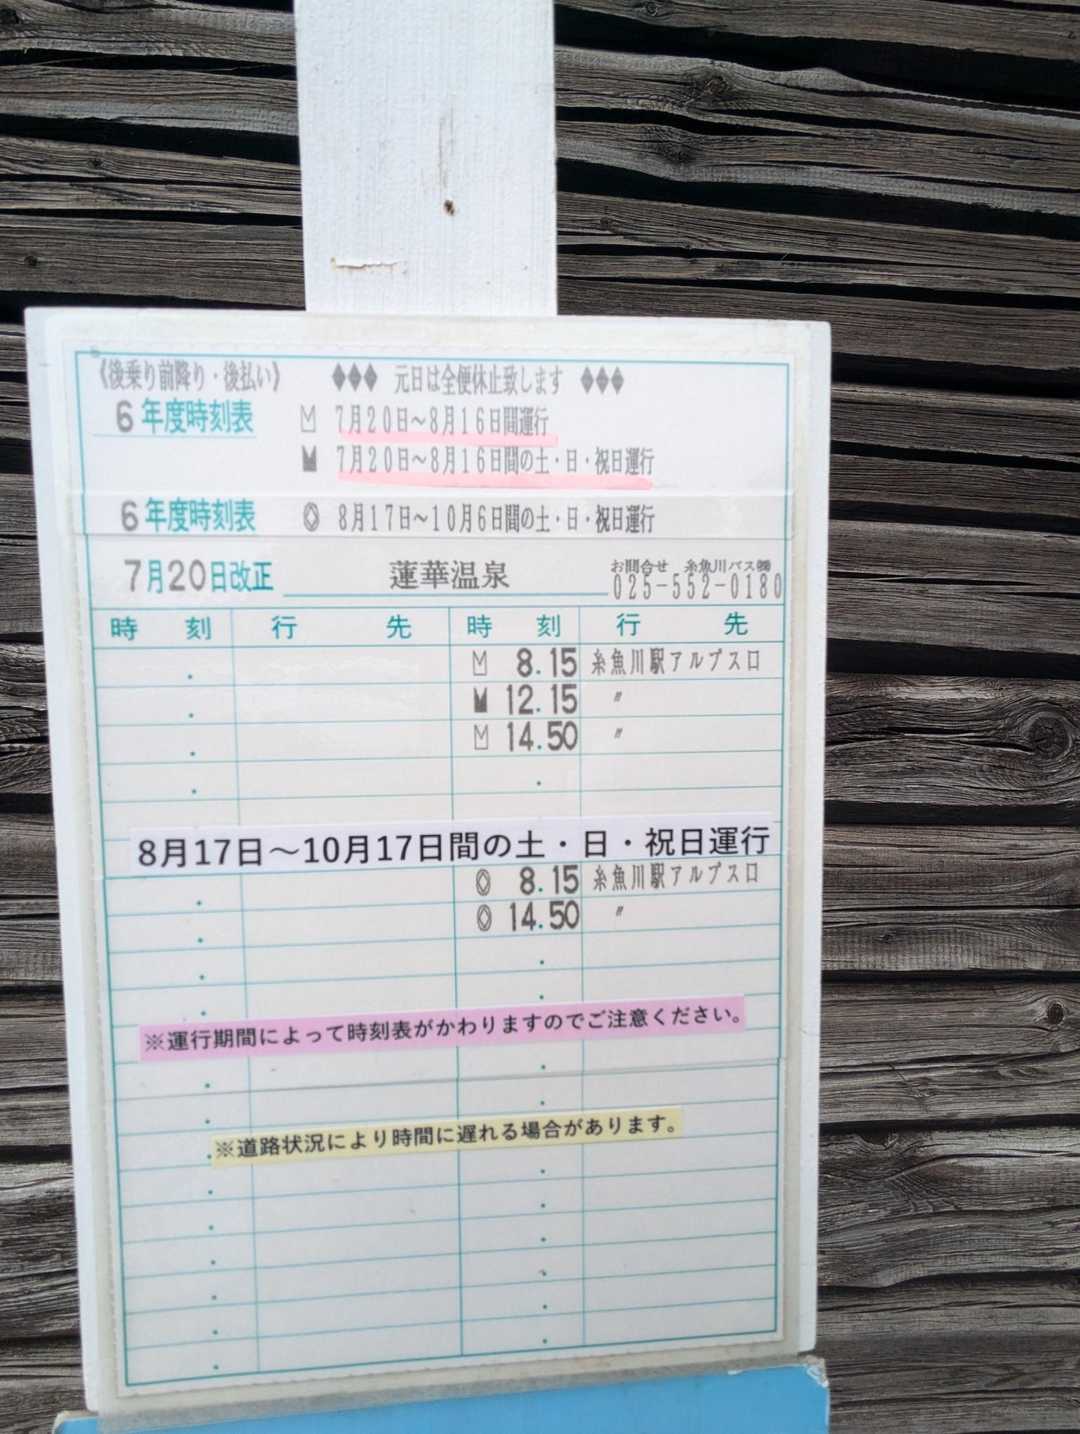 《後乗り前降り・後払い》 ◆◆◆ 元日は全便休止致します ◆◆◆
6年度時刻表 7月20日〜8月16日間運行
7月20日〜8月16日間の土・日・祝日運行
6年度時刻表 ◎ 8月17日〜10月6日間の土・日・祝日運行
7月20日改正 蓮華温泉 お問合せ 糸魚川バス㈱
025-552-0180
時刻 行先 時刻 行先
8.15 糸魚川駅アルプス口
12.15 〃
14.50 〃
8月17日〜10月17日間の土・日・祝日運行
◎ 8.15 糸魚川駅アルプス口
◎ 14.50 〃
※運行期間によって時刻表がかわりますのでご注意ください。
※道路状況により時間に遅れる場合があります。